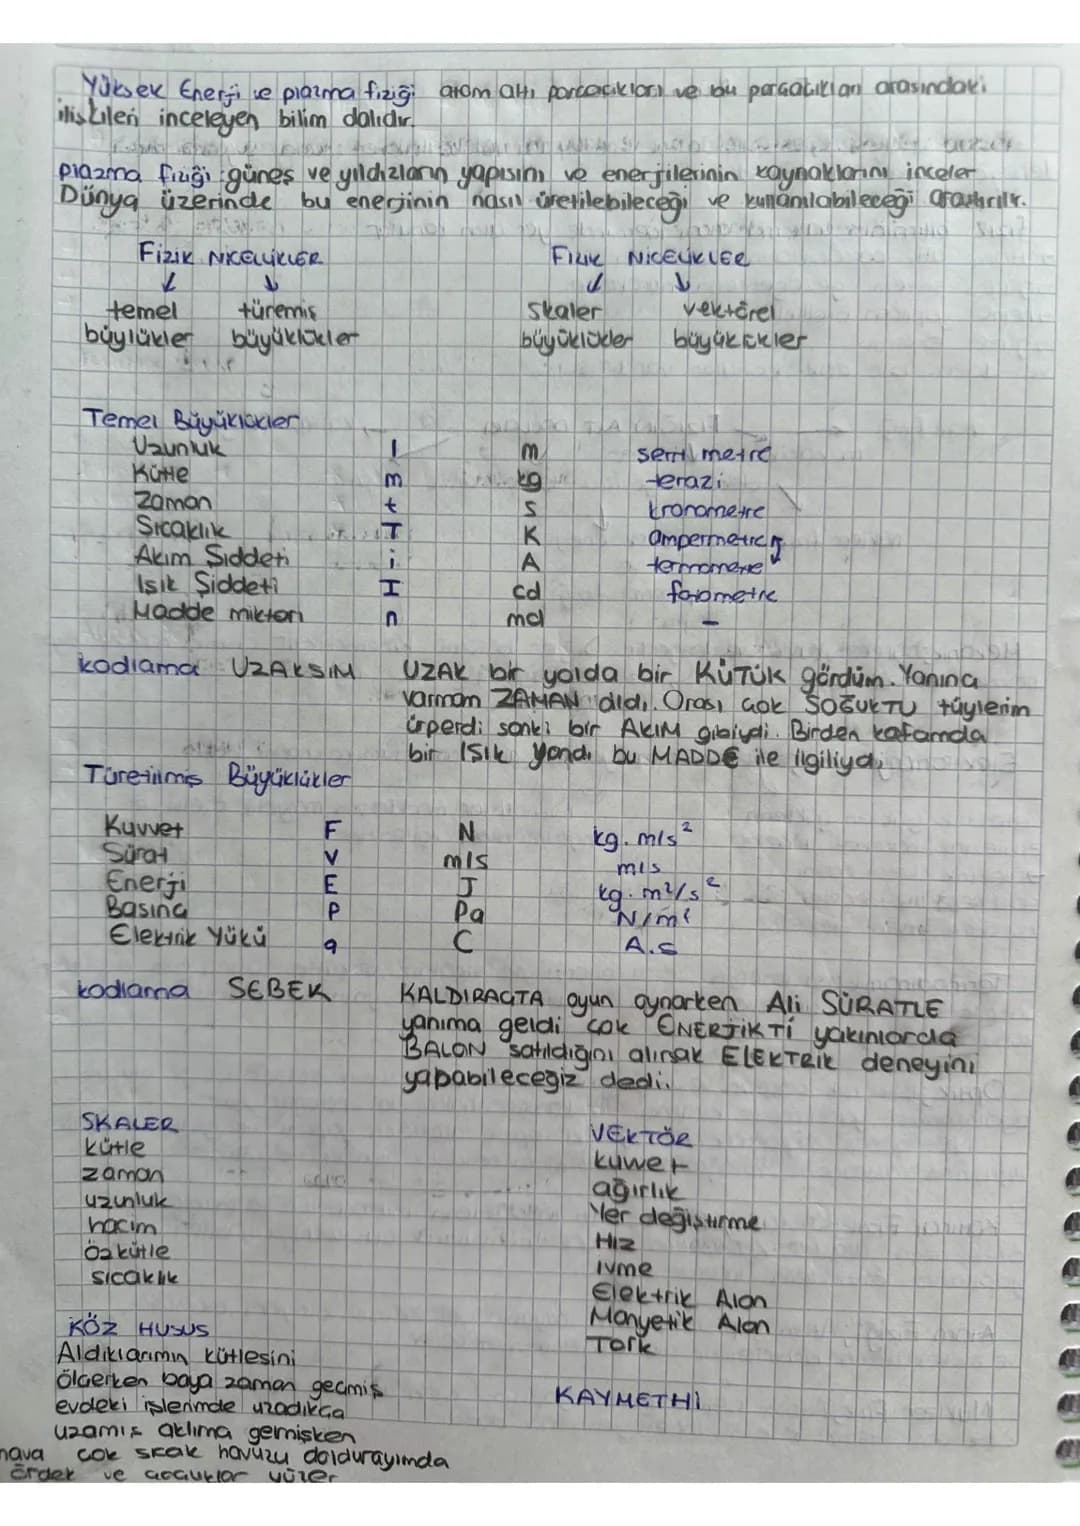 Yüksek Enerji ve plazma fiziği atom altı parçacıkları ve bu parçacıkları arasındaki
ilişkileri inceleyen bilim dalıdır.
plazma fiziği: güneş ve yıldızların yapısını ve enerjilerinin kaynaklarını inceler
Dünya üzerinde bu enerjinin nasıl üretilebileceği ve kullanılabileceği araştırılır.
FİZİK NİCELİKLER FİZİK NİCELİKLER
temel türemiş skaler vektörel
büylükler büyüklükler büyüklükler büyüklükler
Temel Büyüklükler
Uzunluk l m şerit metre
Kütle m kg terazi
Zaman t s kronometre
Sıcaklık T K ampermetre
Akım Şiddeti i A termometre
Işık Şiddeti I cd fotometre
Madde miktarı n mol -
kodlama UZAKSIM UZAK bir yolda bir KÜTÜK gördüm. Yanına
varmam ZAMAN aldı. Orası çok SOĞUKTU tüylerim
ürperdi sanki bir AKIM gibiydi. Birden kafamda
bir IŞIK yandı bu MADDE ile ilgiliydi
Türetilmiş Büyüklükler
Kuvvet F N kg. m/s²
Sürat V m/s m/s
Enerji E J kg. m²/s²
Basınç P Pa N/m²
Elektrik Yükü q C A.s
kodlama SEBEK KALDIRAÇTA oyun oynarken Ali SÜRATLE
yanıma geldi çok ENERJİKTİ yakınlarda
BALON satıldığını alırsak ELEKTRİK deneyini
yapabileceğiz dedi.
SKALER VEKTÖR
kütle kuvvet
zaman ağırlık
uzunluk Yer değiştirme
hacim Hız
özkütle ivme
sıcaklık Elektrik Alan
Manyetik Alan
Tork
KÖZ HUSUS
Aldıklarımın kütlesini
ölçerken baya zaman geçmiş KAYMETHİ
evdeki işlerimde uzadıkça
uzamış aklıma gelmişken
hava çok sıcak havuzu doldurayımda
ördek ve çocuklar yüzer